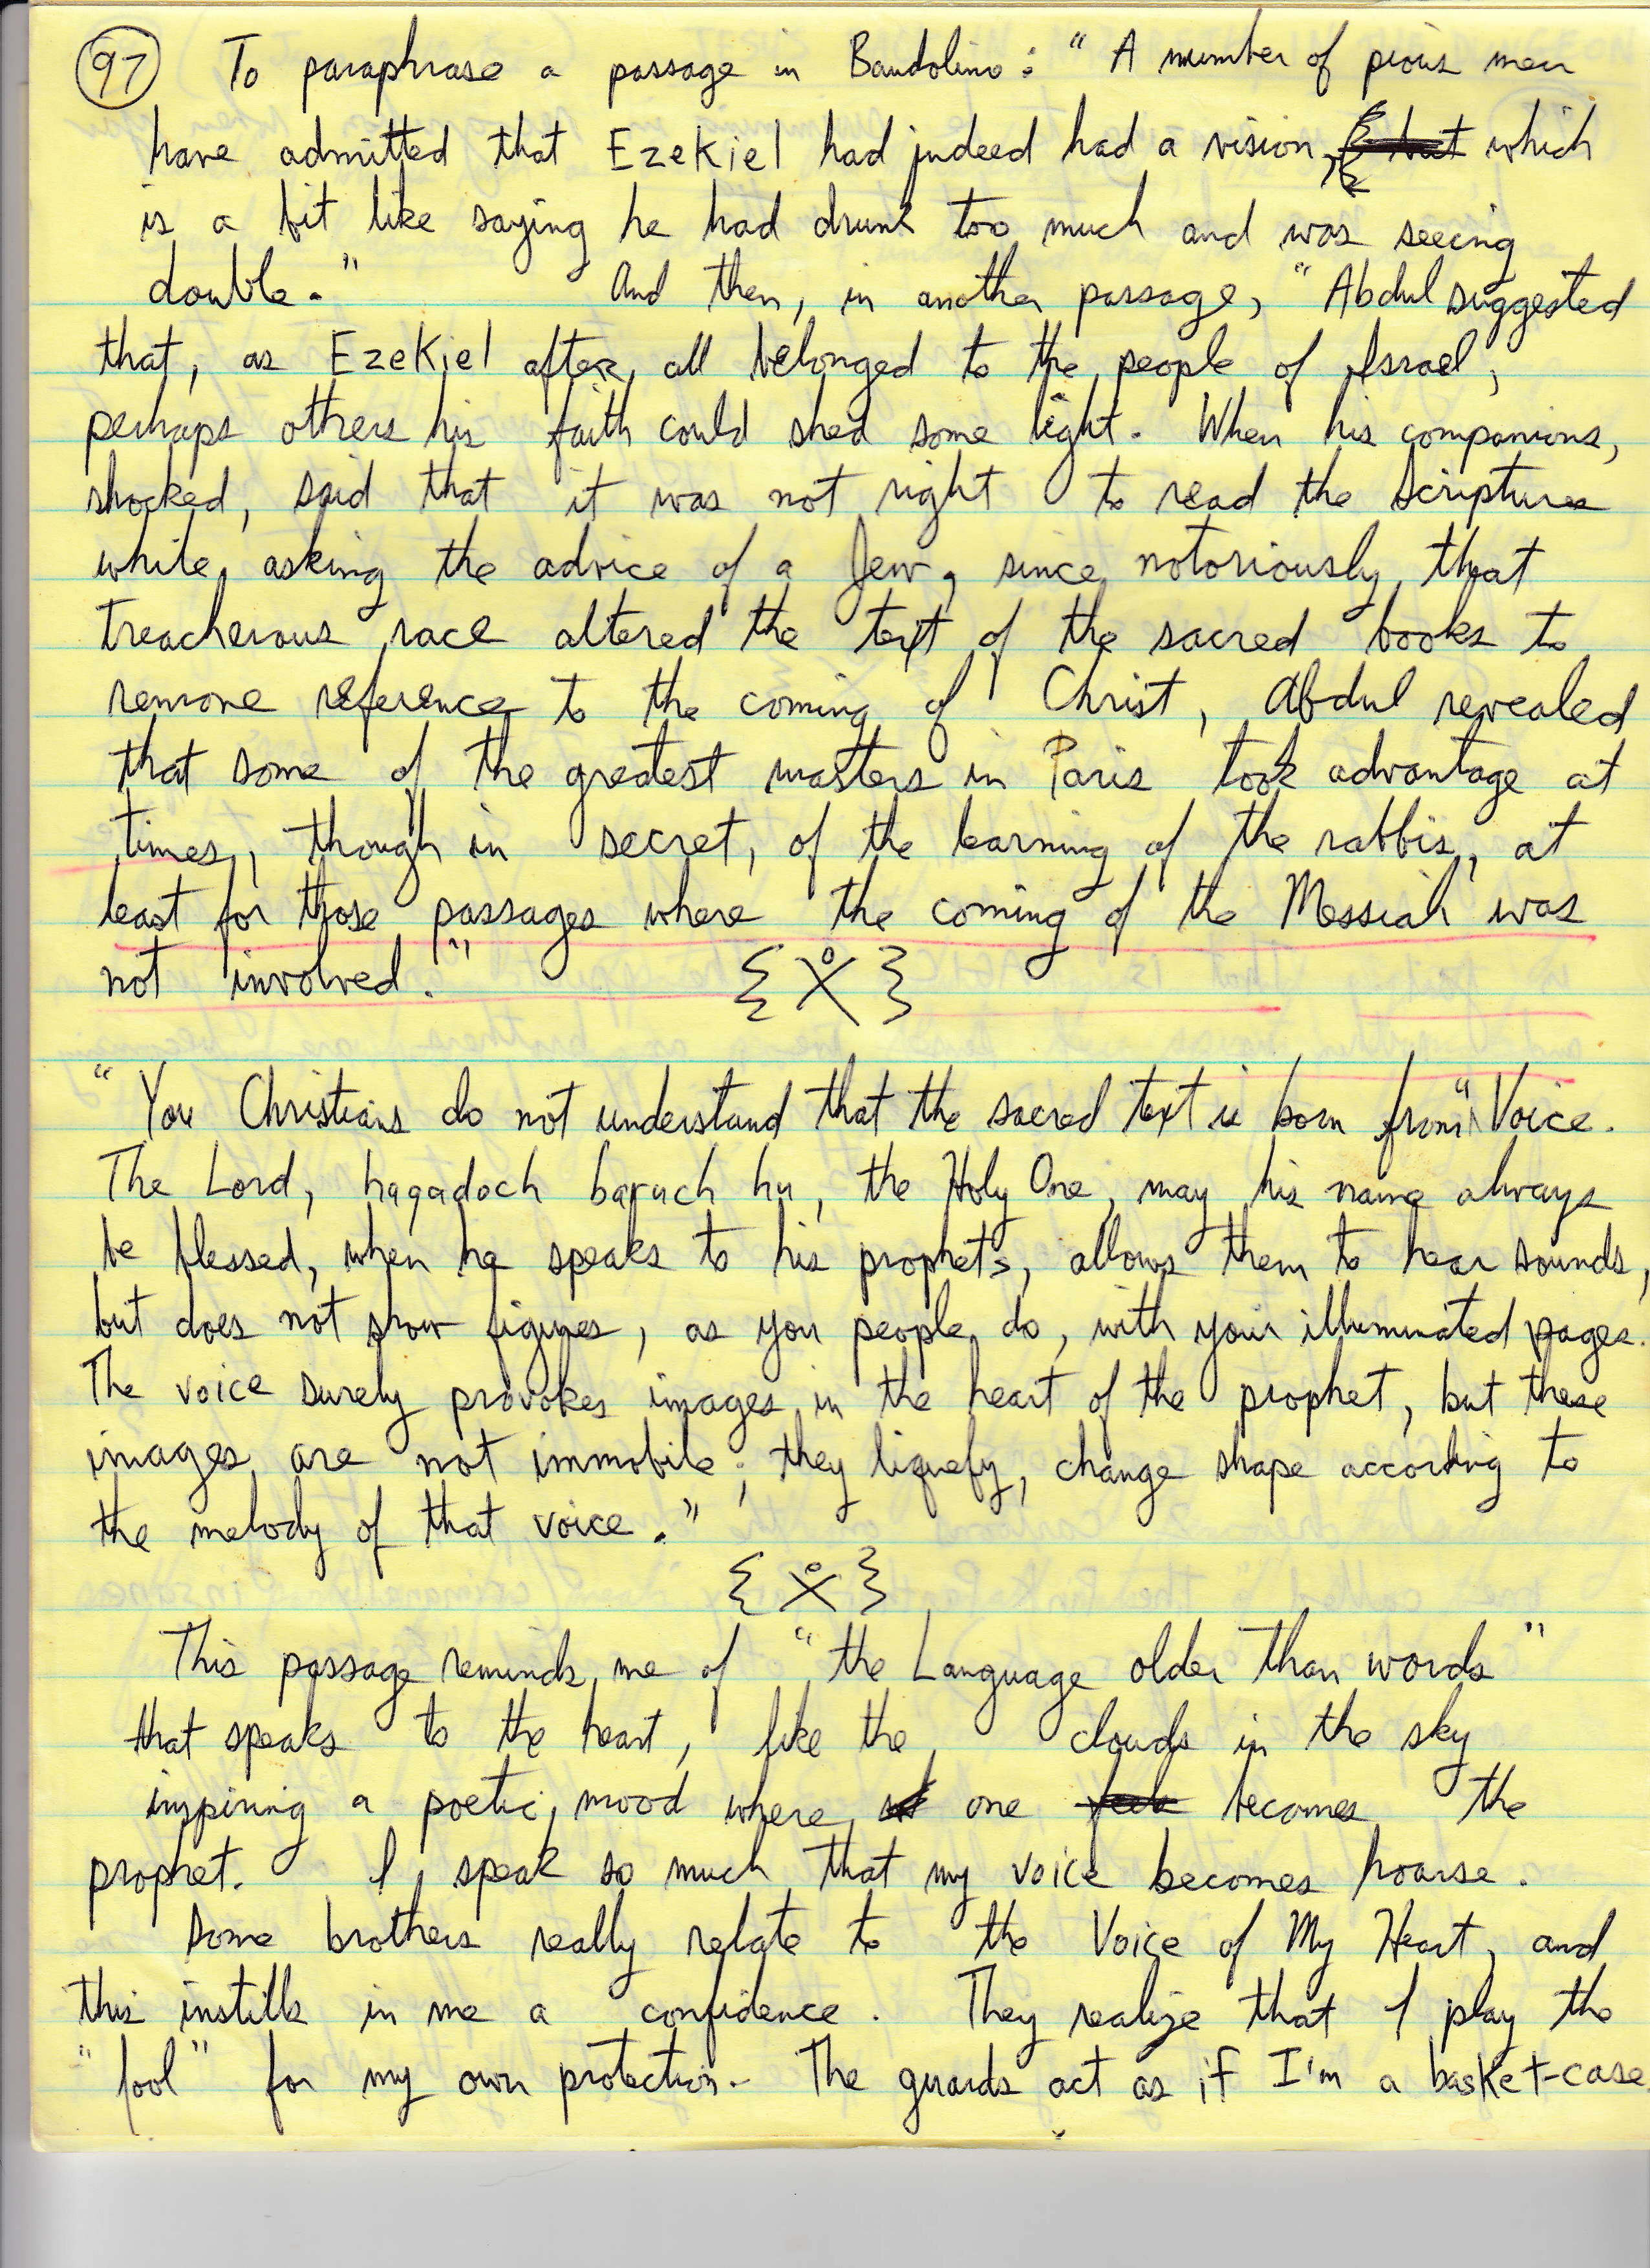 97 To paraphrase a passage in Baudolino: " A number of pious men
have admitted that Ezekiel had indeed had a vision, which
is a bit like saying he had drunk too much and was seeing
double." And then, in another passage, "Abdul suggested
that, as Ezekiel after all belonged to the people of Israel,
perhaps others his faith could shed some light. When his companions,
shocked, said that it was not right to read the Scriptures
while asking the advice of a Jew, since notoriously that
treacherous race altered the text of the sacred books to
remove reference to the coming of Christ, Abdul revealed
that some of the greatest masters in Paris took advantage at
times, though in secret, of the learning of the rabbis, at
least for those passages where the coming of the Messiah was
not involved."
"You Christians do not understand that the sacred text is born from "Voice.
The Lord, haqadoch baruch hu, the Holy One, may his name always
be blessed, when he speaks to his prophets, allows them to hear sounds,
but does not show figures, as you people do, with your illuminated pages.
The voice surely provokes images in the heart of the prophet, but these
images are not immobile; they liquefy, change shape according to
the melody of that voice."
This passage reminds me of "the Language older than words"
that speaks to the heart, like the clouds in the sky
inspiring a poetic mood where one becomes the
prophet. I speak so much that my voice becomes hoarse.
Some brothers really relate to the Voice of My Heart, and
this instills in me a confidence. They realize that I play the
"fool" for my own protection. The guards act as if I'm a basket-case